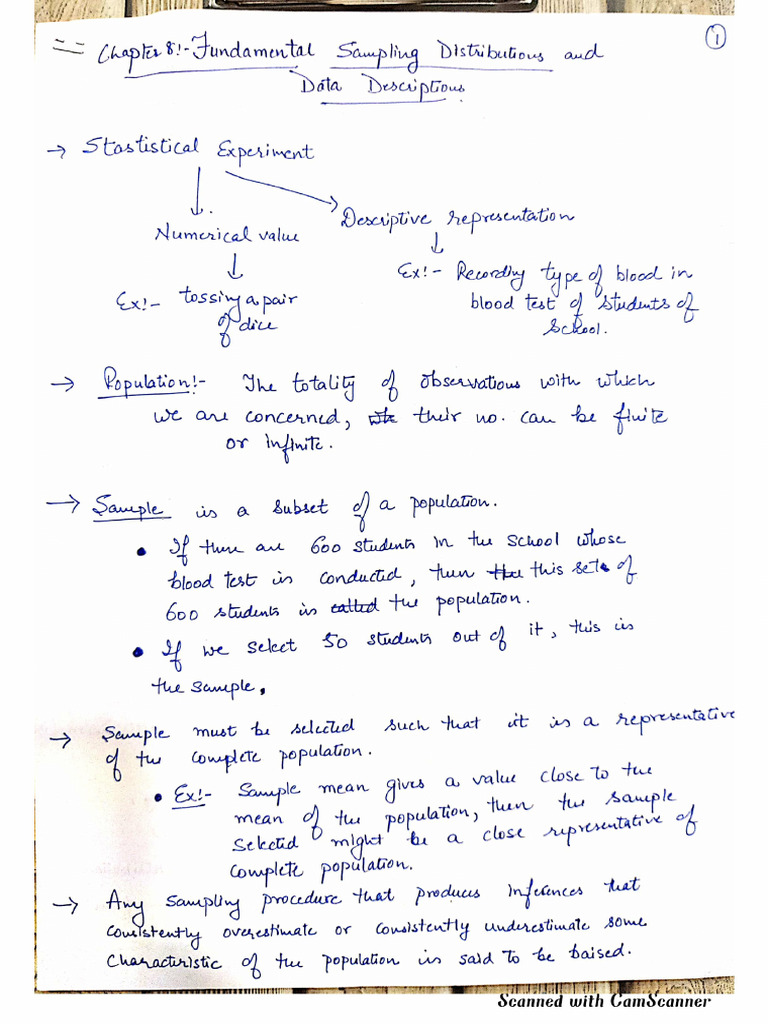 1
Chapter 8:- Fundamental Sampling Distributions and
Data Descriptions
→ Stastistical Experiment
Numerical value
Descriptive representation
Ex:- tossing a pair
of dice
Ex:- Recording type of blood in
blood test of students of
School.
→ Population:- The totality of observations with which
we are concerned, their no. can be finite
or infinite.
→ Sample is a subset of a population.
• If there are 600 students in the school whose
blood test is conducted, then this set of
600 students is called the population.
• If we select 50 students out of it, this is
the sample.
→ Sample must be selected such that it is a representative
of the complete population.
• Ex:- Sample mean gives a value close to the
mean of the population, then the sample
selected might be a close representative of
complete population.
→ Any sampling procedure that produces inferences that
consistently overestimate or consistently underestimate some
characteristic of the population is said to be baised.
Scanned with CamScanner